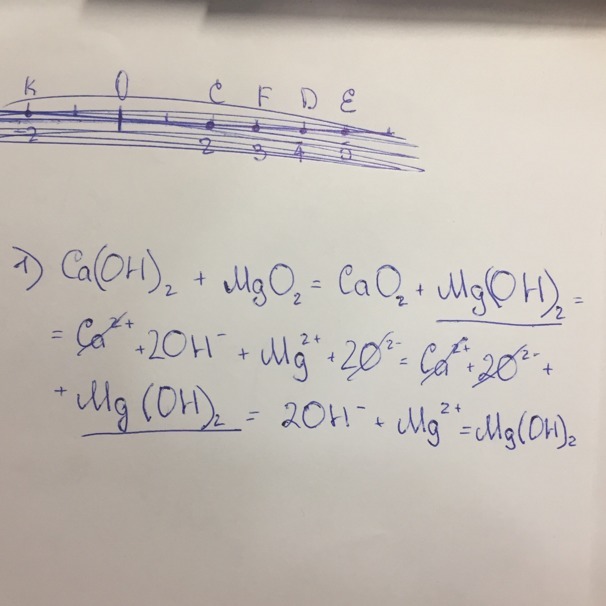 K O C F D E
-2 2 3 4 5
1) Ca(OH)₂ + MgO₂ = CaO₂ + Mg(OH)₂ =
= Ca²⁺ + 2OH⁻ + Mg²⁺ + 2O²⁻ = Ca²⁺ + 2O²⁻ +
+ Mg(OH)₂ = 2OH⁻ + Mg²⁺ = Mg(OH)₂